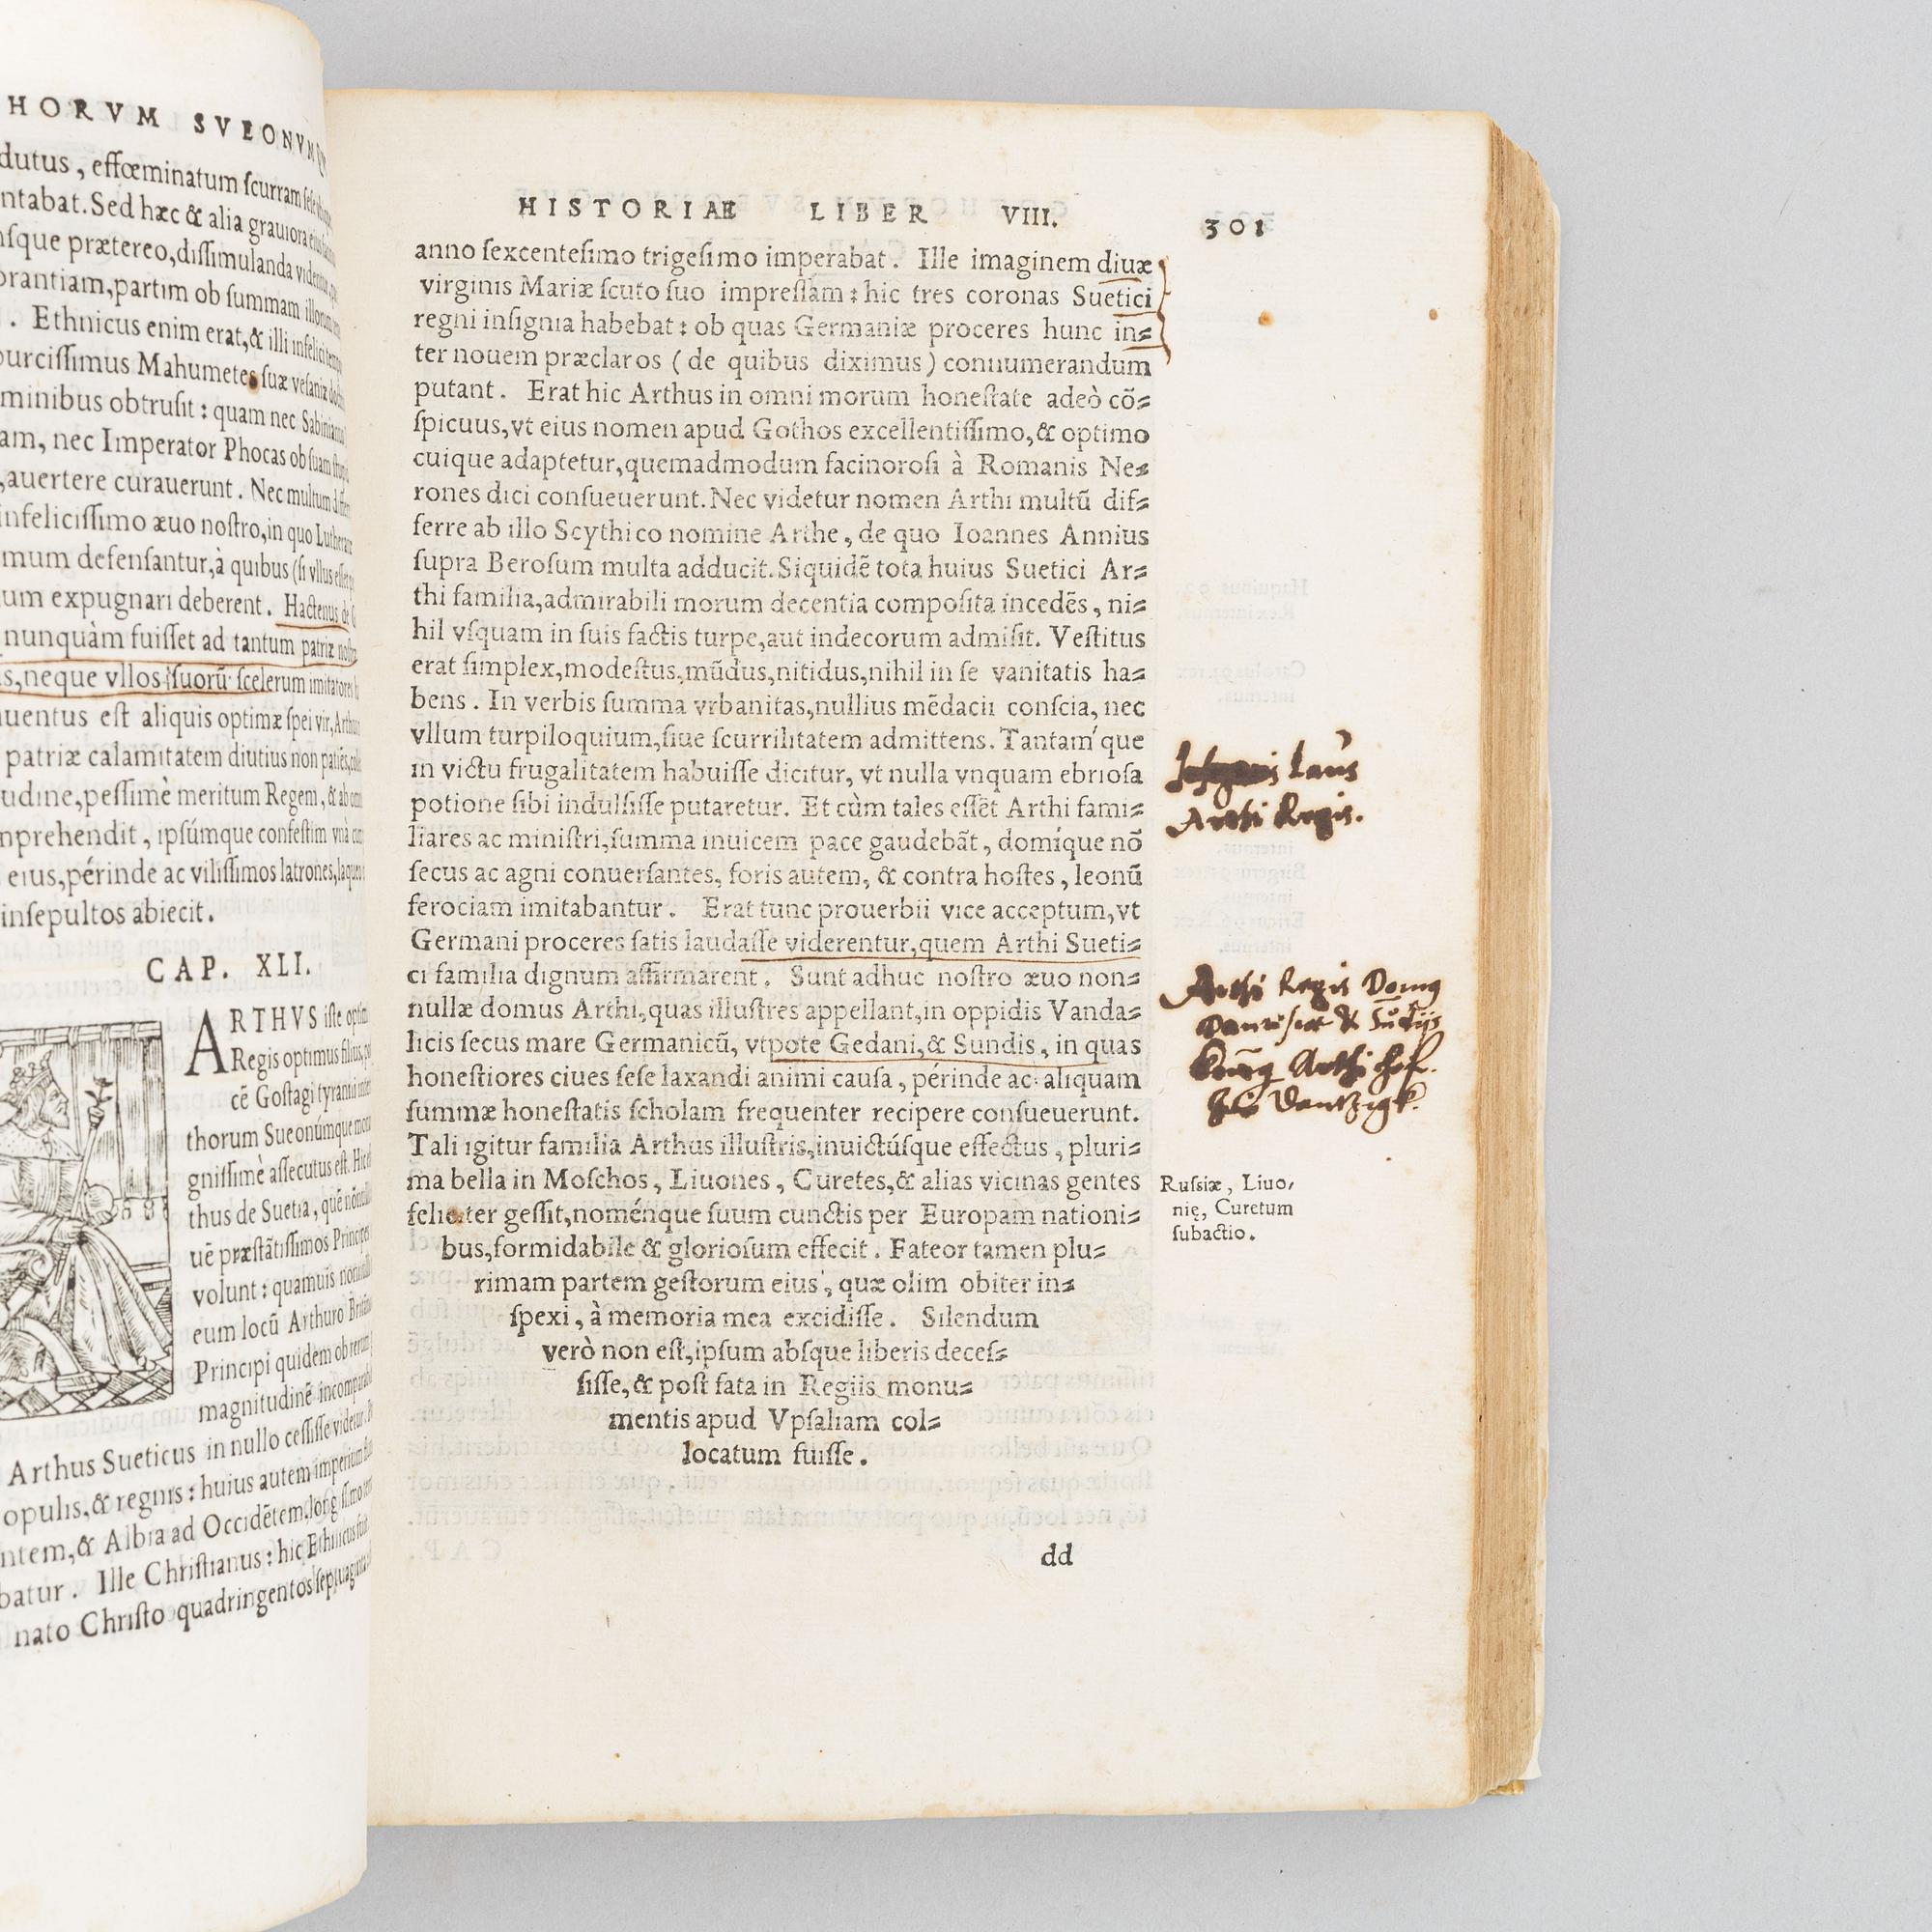 HORVM SVEONVMQ
dutus, effœminatum ſcurram
ntabat. Sed hæc & alia grauiora
nſque prætereo, diſſimulanda
orantiam, partim ob ſummam
. Ethnicus enim erat, & illi
purciſſimus Mahumetes ſuæ veſaniæ
minibus obtruſit: quam nec
am, nec Imperator Phocas ob ſuam
, auertere curauerunt. Nec multum
infeliciſſimo æuo noſtro, in quo
mum defenſantur, à quibus (ſi vllus
um expugnari deberent. Hactenus
nunquàm fuiſſet ad tantum patriæ
s, neque vllos ſuorū ſcelerum imitatores
uentus eſt aliquis optimæ ſpei vir,
patriæ calamitatem diutius non
udine, peſſimè meritum Regem, &
mprehendit, ipſúmque confeſtim vnà
eius, périnde ac viliſſimos latrones,
inſepultos abiecit.
CAP. XLI.
ARTHVS iſte
Regis optimus filius,
cē Goſtagi tyranni
thorum Sueonúmque
gniſſimè aſſecutus eſt.
thus de Suetia, quē
uē præſtātiſſimos Principes
volunt: quamuis
eum locū Arthuro
Principi quidem ob
magnitudinē
Arthus Sueticus in nullo ceſſiſſe
opulis, & regnis: huius autem
ntem, & Albia ad Occidētem,
batur. Ille Chriſtianus: hic
nato Chriſto quadringentos
HISTORIAE LIBER VIII. 301
anno ſexcenteſimo trigeſimo imperabat. Ille imaginem diuæ
virginis Mariæ ſcuto ſuo impreſſam: hic tres coronas Suetici
regni inſignia habebat: ob quas Germaniæ proceres hunc in⸗
ter nouem præclaros (de quibus diximus) connumerandum
putant. Erat hic Arthus in omni morum honeſtate adeò cō⸗
ſpicuus, vt eius nomen apud Gothos excellentiſſimo, & optimo
cuique adaptetur, quemadmodum facinoroſi à Romanis Ne⸗
rones dici conſueuerunt. Nec videtur nomen Arthi multū dif⸗
ferre ab illo Scythico nomine Arthe, de quo Ioannes Annius
ſupra Beroſum multa adducit. Siquidē tota huius Suetici Ar⸗
thi familia, admirabili morum decentia compoſita incedēs, ni⸗
hil vſquam in ſuis factis turpe, aut indecorum admiſit. Veſtitus
erat ſimplex, modeſtus, mūdus, nitidus, nihil in ſe vanitatis ha⸗
bens. In verbis ſumma vrbanitas, nullius mēdacii conſcia, nec
vllum turpiloquium, ſiue ſcurrilitatem admittens. Tantam'que
in victu frugalitatem habuiſſe dicitur, vt nulla vnquam ebrioſa
potione ſibi indulſiſſe putaretur. Et cùm tales eſſēt Arthi fami⸗
liares ac miniſtri, ſumma inuicem pace gaudebāt, domíque nō
ſecus ac agni conuerſantes, foris autem, & contra hoſtes, leonū
ferociam imitabantur. Erat tunc prouerbii vice acceptum, vt
Germani proceres ſatis laudaſſe viderentur, quem Arthi Sueti⸗
ci familia dignum affirmarent. Sunt adhuc noſtro æuo non⸗
nullæ domus Arthi, quas illuſtres appellant, in oppidis Vanda⸗
licis ſecus mare Germanicū, vtpote Gedani, & Sundis, in quas
honeſtiores ciues ſeſe laxandi animi cauſa, périnde ac aliquam
ſummæ honeſtatis ſcholam frequenter recipere conſueuerunt.
Tali igitur familia Arthus illuſtris, inuictúſque effectus, pluri⸗
ma bella in Moſchos, Liuones, Curetes, & alias vicinas gentes
feliciter geſſit, noménque ſuum cunctis per Europam nationi⸗
bus, formidabile & glorioſum effecit. Fateor tamen plu⸗
rimam partem geſtorum eius, quæ olim obiter in⸗
ſpexi, à memoria mea excidiſſe. Silendum
verò non eſt, ipſum abſque liberis deceſ⸗
ſiſſe, & poſt fata in Regiis monu⸗
mentis apud Vpſaliam col⸗
locatum fuiſſe.
dd
laus
Arthi Regis.
Arthi Regis Domus
Arthi hof.
Russiæ, Liuo,
nię, Curetum
subactio.